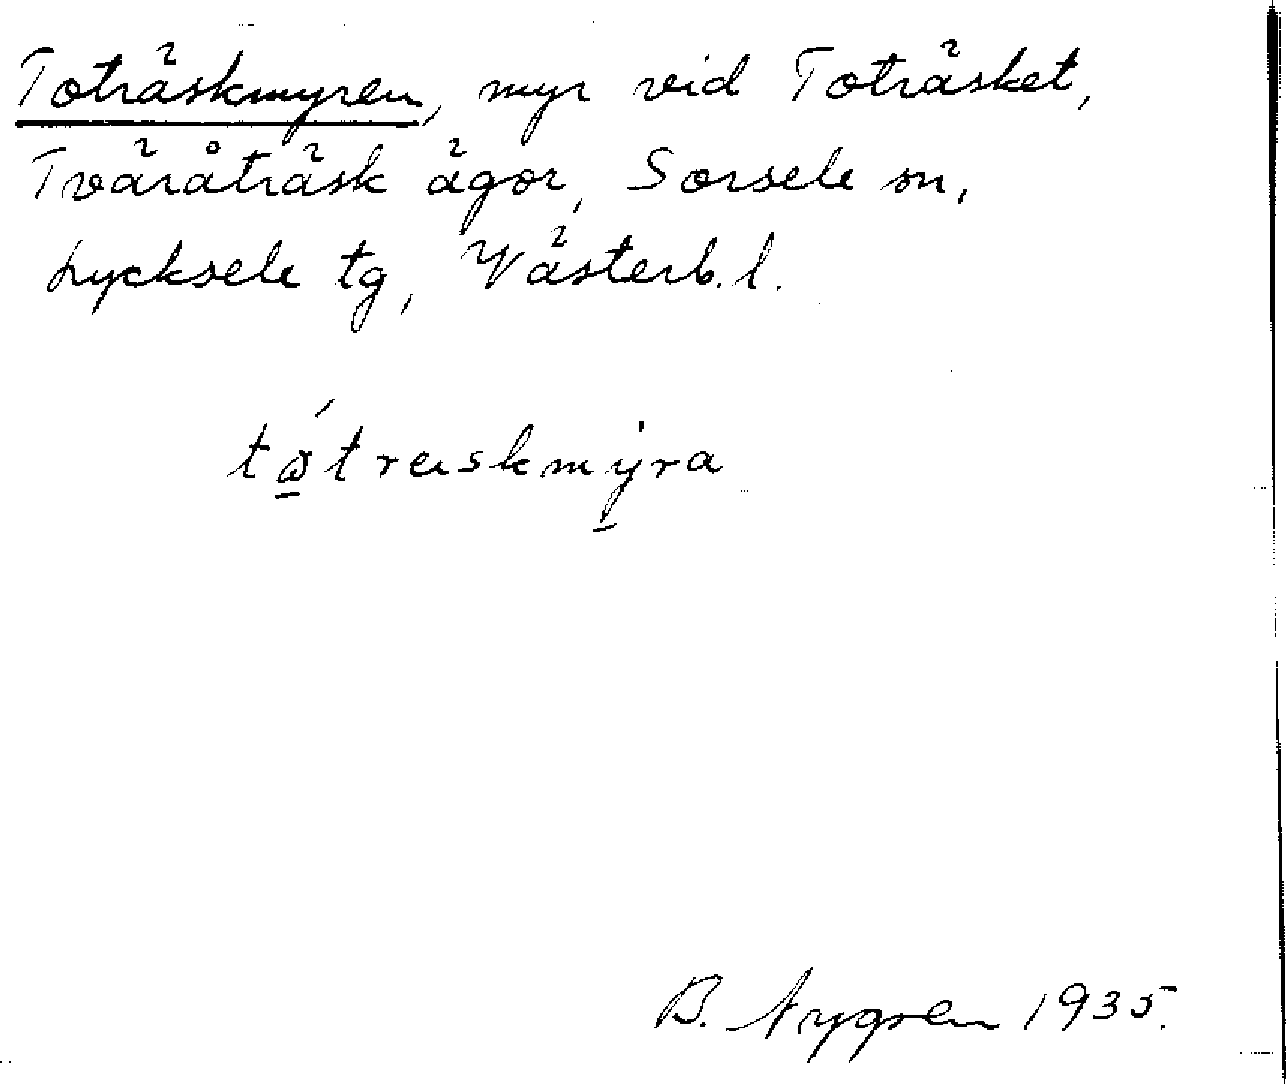 Toträskmyren, myr vid Toträsket,
Tväråträsk ägor, Sorsele sn,
Lycksele tg, Västerb. l.
B. Nygren 1935.